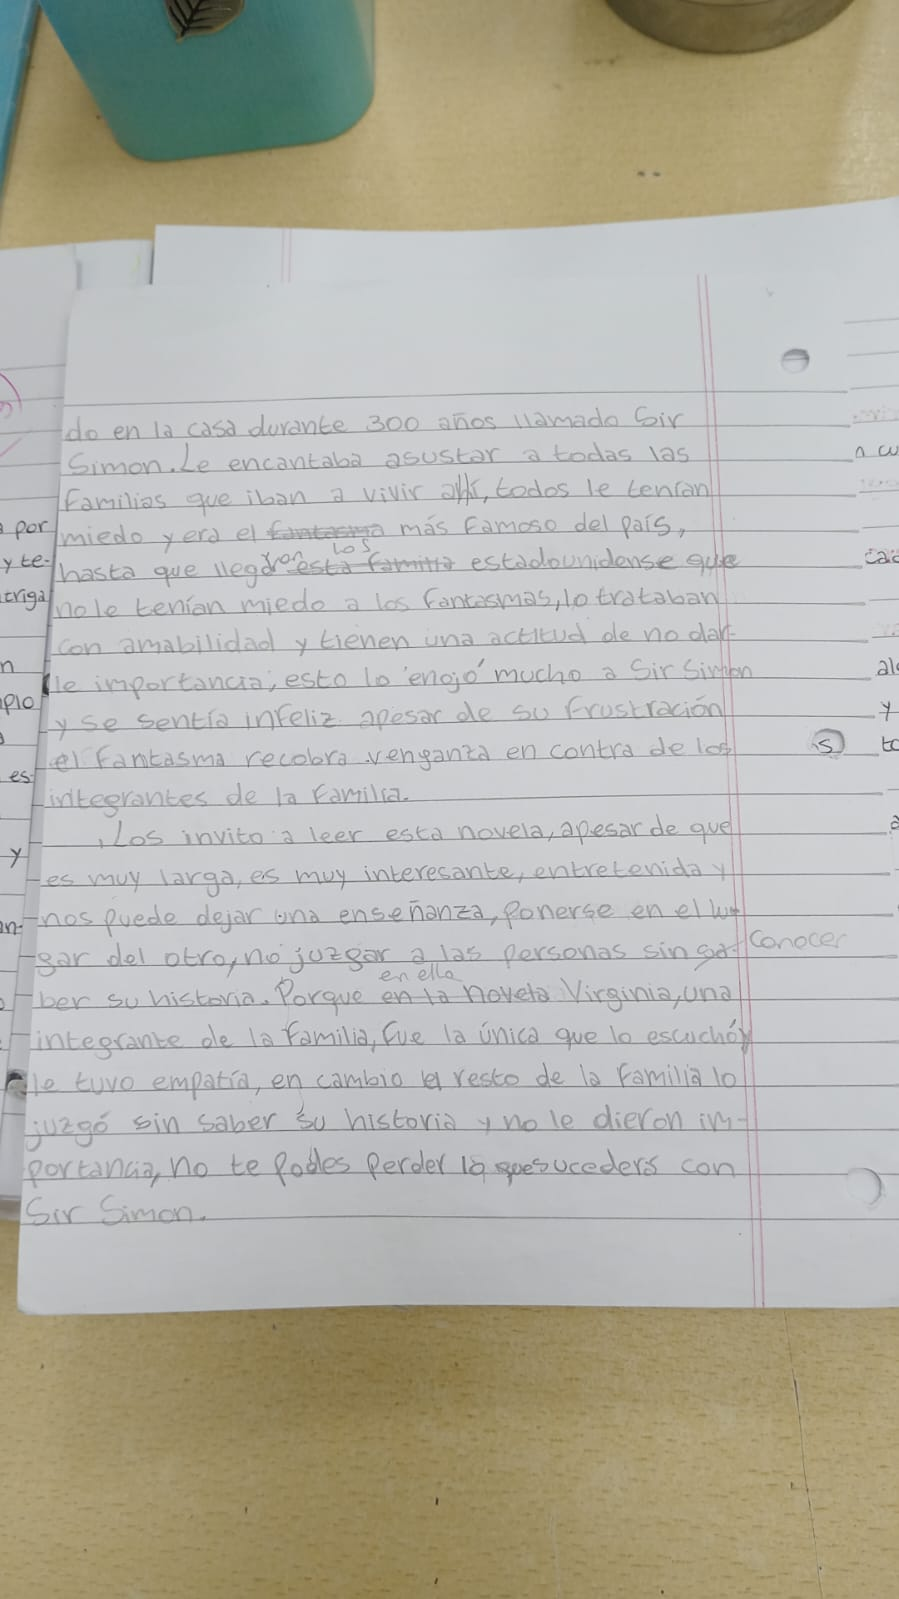 do en la casa durante 300 años llamado Sir
Simon. Le encantaba asustar a todas las
familias que iban a vivir ahí, todos le tenían
miedo y era el fantasma más famoso del país,
los
hasta que llegaron esta familia estadounidense que
no le tenían miedo a los fantasmas, lo trataban
con amabilidad y tienen una actitud de no dar-
le importancia, esto lo enojó mucho a Sir Simon
y se sentía infeliz. apesar de su frustración
el fantasma recobra venganza en contra de los
integrantes de la familia.
Los invito a leer esta novela, apesar de que
es muy larga, es muy interesante, entretenida y
nos puede dejar una enseñanza, ponerse en el lu-
gar del otro, no juzgar a las personas sin sa- conocer
en ella
ber su historia. Porque en la novela Virginia, una
integrante de la familia, fue la única que lo escuchó y
le tuvo empatía, en cambio el resto de la familia lo
juzgó sin saber su historia y no le dieron im-
portancia, no te podes perder lo que sucederá con
Sir Simon.
por
y te-
triga
n
plo
es-
y
an-
a cu
al
y
s to